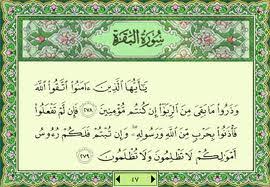 سُورَةُ البَقَرَة
يَـٰٓأَيُّهَا ٱلَّذِينَ ءَامَنُوا۟ ٱتَّقُوا۟ ٱللَّهَ
وَذَرُوا۟ مَا بَقِىَ مِنَ ٱلرِّبَوٰٓا۟ إِن كُنتُم مُّؤْمِنِينَ ٢٧٨ فَإِن لَّمْ تَفْعَلُوا۟
فَأْذَنُوا۟ بِحَرْبٍ مِّنَ ٱللَّهِ وَرَسُولِهِۦ وَإِن تُبْتُمْ فَلَكُمْ رُءُوسُ
أَمْوَٰلِكُمْ لَا تَظْلِمُونَ وَلَا تُظْلَمُونَ ٢٧٩
٤٧